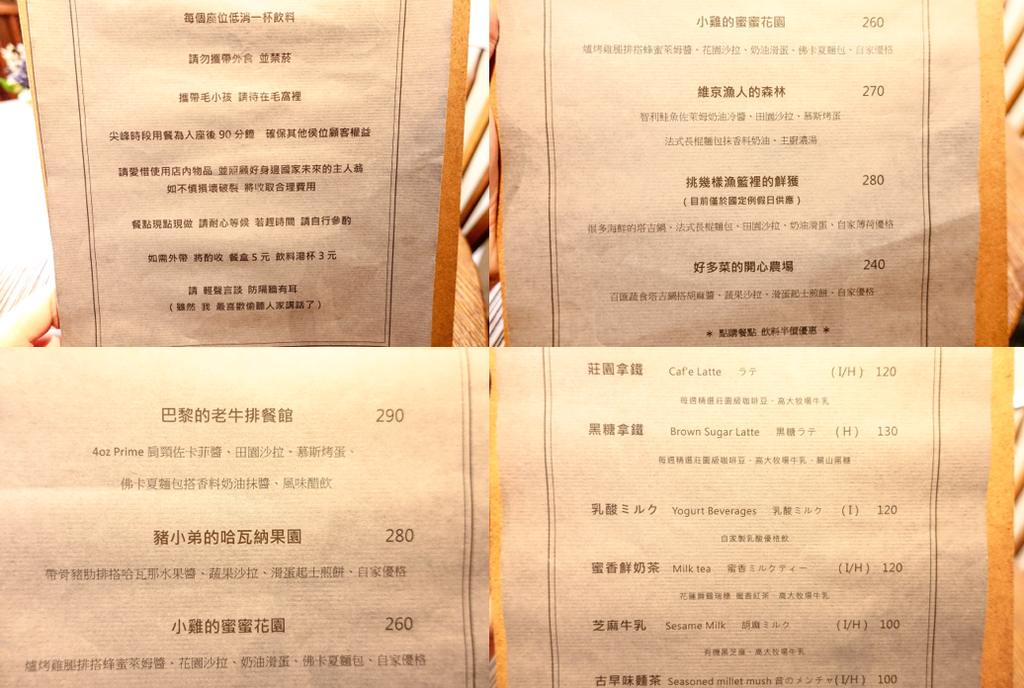 每個座位低消一杯飲料
請勿攜帶外食 並禁菸
攜帶毛小孩 請待在毛窩裡
尖峰時段用餐為入座後 90 分鐘 確保其他侯位顧客權益
請愛惜使用店內物品 並照顧好身邊國家未來的主人翁
如不慎損壞破裂 將收取合理費用
餐點現點現做 請耐心等候 若趕時間 請自行參酌
如需外帶 將酌收 餐盒 5 元 飲料湯杯 3 元
請 輕聲言談 防隔牆有耳
( 雖然 我 最喜歡偷聽人家講話了 )
小雞的蜜蜜花園 260
爐烤雞腿排搭蜂蜜萊姆醬、花園沙拉、奶油滑蛋、佛卡夏麵包、自家優格
維京漁人的森林 270
智利鮭魚佐萊姆奶油冷醬、田園沙拉、慕斯烤蛋
法式長棍麵包抹香料奶油、主廚濃湯
挑幾樣漁籃裡的鮮獲 280
( 目前僅於國定例假日供應 )
很多海鮮的塔吉鍋、法式長棍麵包、田園沙拉、奶油滑蛋、自家薄荷優格
好多菜的開心農場 240
百匯蔬食塔吉鍋搭胡麻醬、蔬果沙拉、滑蛋起士煎餅、自家優格
* 點購餐點 飲料半價優惠 *
巴黎的老牛排餐館 290
4oz Prime 肩頸佐卡菲醬、田園沙拉、慕斯烤蛋、
佛卡夏麵包搭香料奶油抹醬、風味醋飲
豬小弟的哈瓦納果園 280
帶骨豬肋排搭哈瓦那水果醬、蔬果沙拉、滑蛋起士煎餅、自家優格
小雞的蜜蜜花園 260
爐烤雞腿排搭蜂蜜萊姆醬、花園沙拉、奶油滑蛋、佛卡夏麵包、自家優格
莊園拿鐵 Caf'e Latte ラテ ( I/H ) 120
每週精選莊園級咖啡豆、高大牧場牛乳
黑糖拿鐵 Brown Sugar Latte 黑糖ラテ ( H ) 130
每週精選莊園級咖啡豆、高大牧場牛乳、關山黑糖
乳酸ミルク Yogurt Beverages 乳酸ミルク ( I ) 120
自家製乳酸優格飲
蜜香鮮奶茶 Milk tea 蜜香ミルクティー ( I/H ) 120
花蓮舞鶴瑞穗 蜜香紅茶、高大牧場牛乳
芝麻牛乳 Sesame Milk 胡麻ミルク ( I/H ) 100
有機黑芝麻、高大牧場牛乳
古早味麵茶 Seasoned millet mush 昔のメンチャ ( I/H ) 100